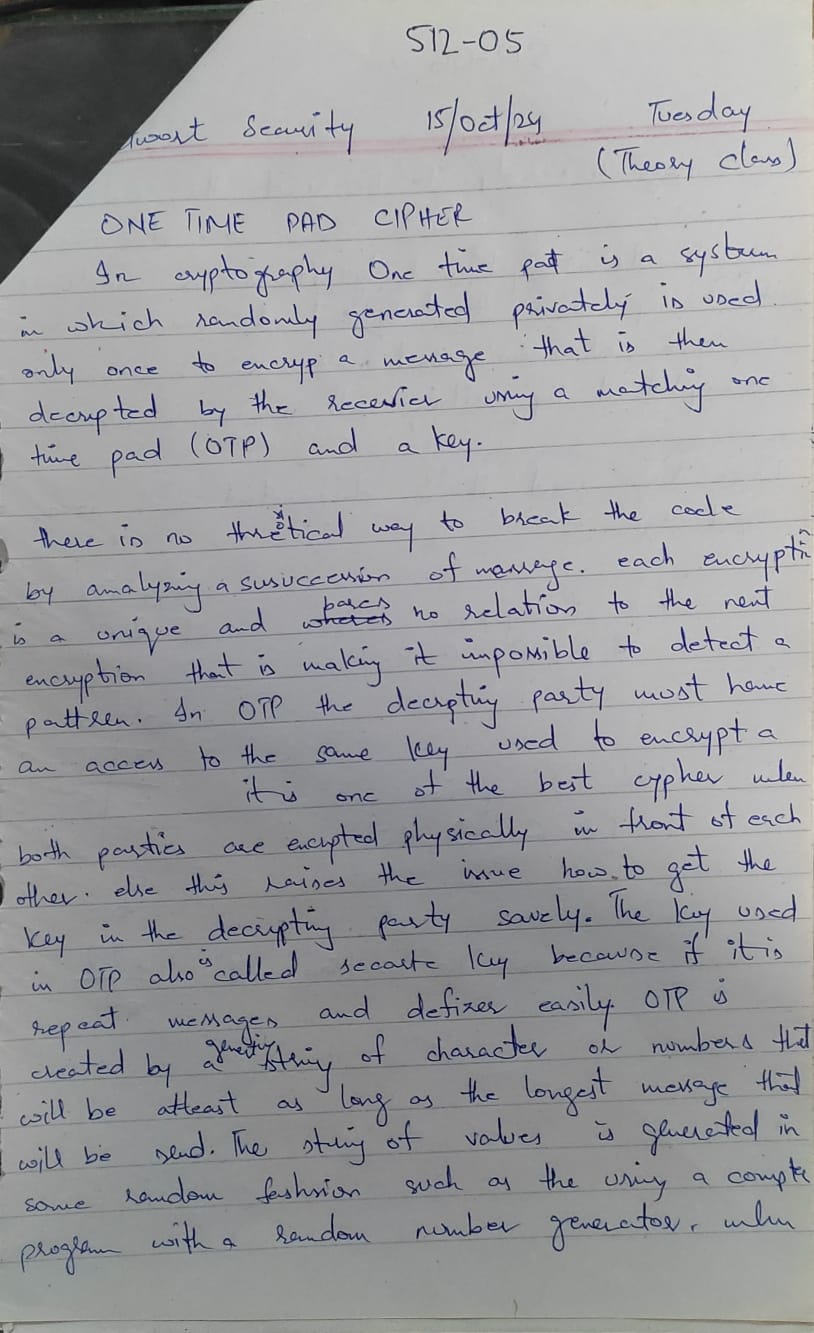 512-05
Security 15/Oct/24 Tuesday
(Theory class)
ONE TIME PAD CIPHER
In cryptography One time pad is a system
in which randomly generated privately is used
only once to encryp a message that is then
decrypted by the recevier using a matching one
time pad (OTP) and a key.
there is no thretical way to break the code
by analyzing a susuccession of message. each encryptin
is a unique and bares no relation to the next
encryption that is making it impossible to detect a
pattren. In OTP the decrpting party must have
an access to the same key used to encrypt a
it is one of the best cypher when
both parties are encrpted physically in front of each
other. else this raises the issue how to get the
key in the decrypting party savely. The key used
in OTP also is called secarte key because if it is
repeat messages and defizer easily. OTP is
created by a generting string of character or numbers that
will be atleast as long as the longest message that
will be send. The string of values is generated in
some random feshrion such as the using a compte
program with a random number generator. when